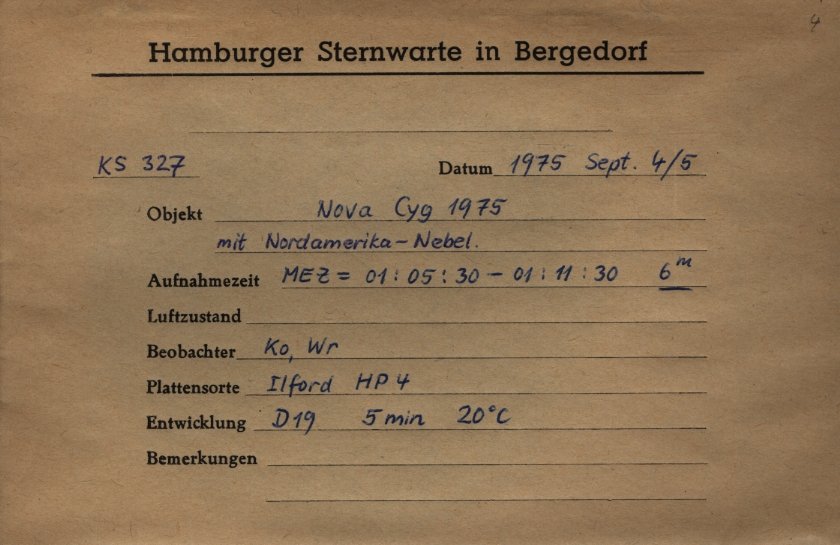 4
Hamburger Sternwarte in Bergedorf
KS 327 Datum 1975 Sept. 4/5
Objekt Nova Cyg 1975
mit Nordamerika-Nebel.
Aufnahmezeit MEZ = 01:05:30 - 01:11:30 6ᵐ
Luftzustand
Beobachter Ko, Wr
Plattensorte Ilford HP4
Entwicklung D19 5 min 20°C
Bemerkungen